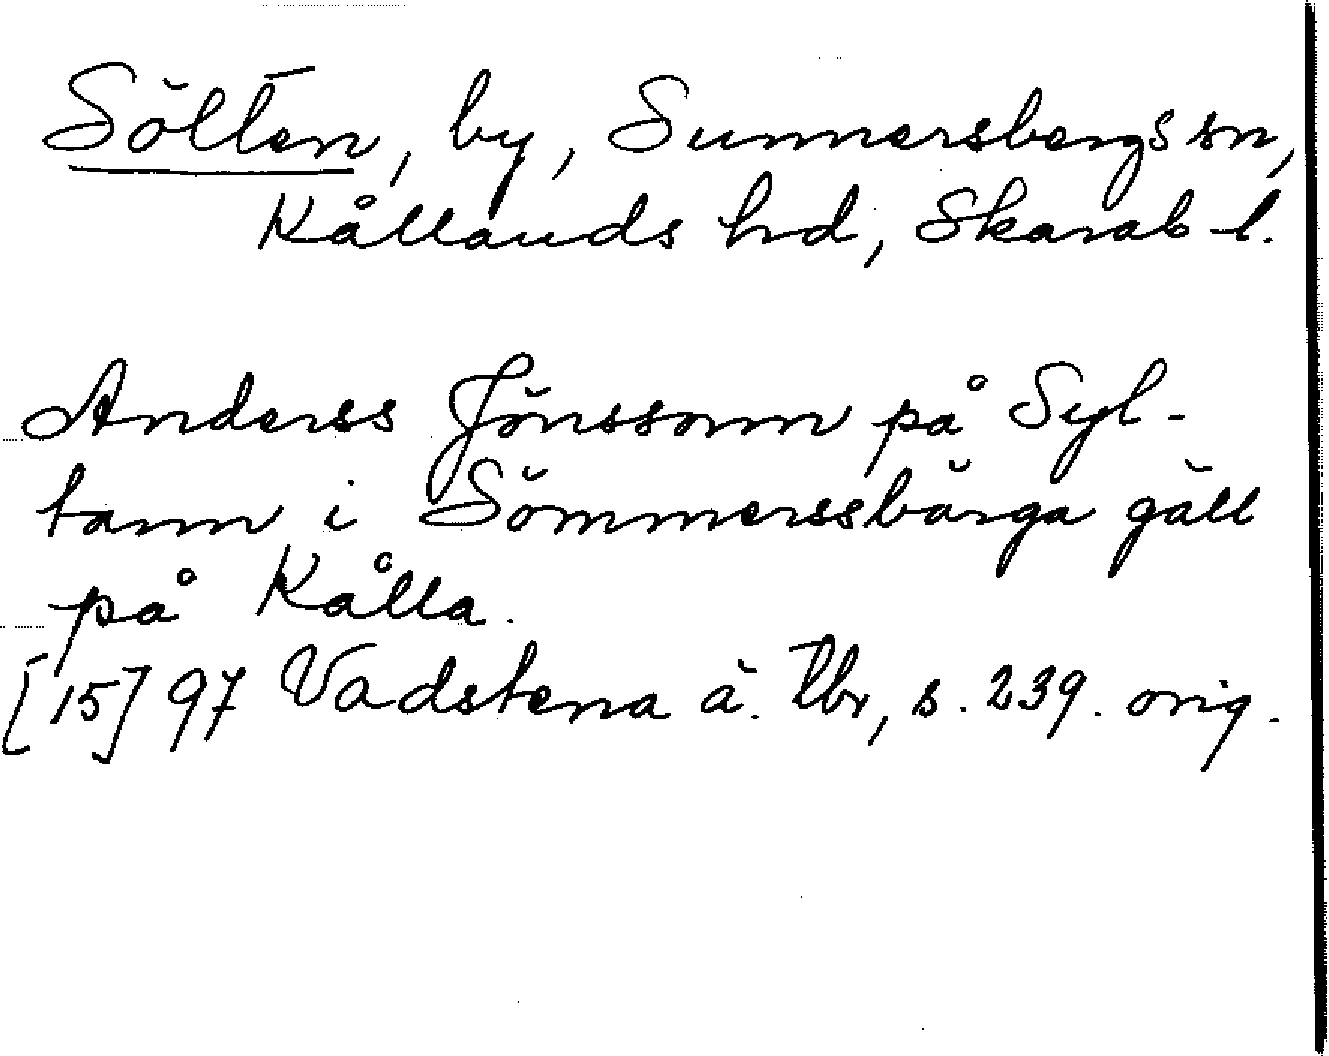 Sölten, by, Sunnersbergs sn,
Kållands hd, Skarab-l.
Anderss Jönssonn på Syl-
tann i Sömmerssbärga gäll
på Kålla.
[15]97 Vadstena ä. tbr, s. 239. orig.